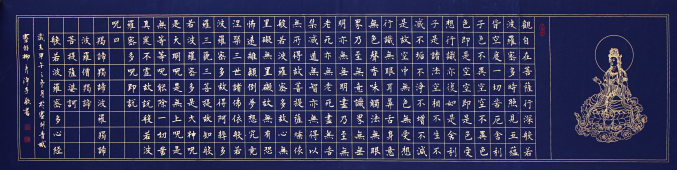 觀自在菩薩行深般若
波羅蜜多時照見五蘊
皆空度一切苦厄舍利
子色不異空空不異色
色即是空空即是色受
想行識亦復如是舍利
子是諸法空相不生不
滅不垢不淨不增不減
是故空中無色無受想
行識無眼耳鼻舌身意
無色聲香味觸法無眼
界乃至無意識界無無
明亦無無明盡乃至無
老死亦無老死盡無苦
集滅道無智亦無得以
無所得故菩提薩埵依
般若波羅蜜多故心無
罣礙無罣礙故無有恐
怖遠離顛倒夢想究竟
涅槃三世諸佛依般若
波羅蜜多故得阿耨多
羅三藐三菩提故知般
若波羅蜜多是大神呪
是大明呪是無上呪是
無等等呪能除一切苦
真實不虛故說般若波
羅蜜多呪即說
呪曰
揭諦揭諦波羅揭諦
波羅僧揭諦
菩提薩婆訶
般若波羅蜜多心經